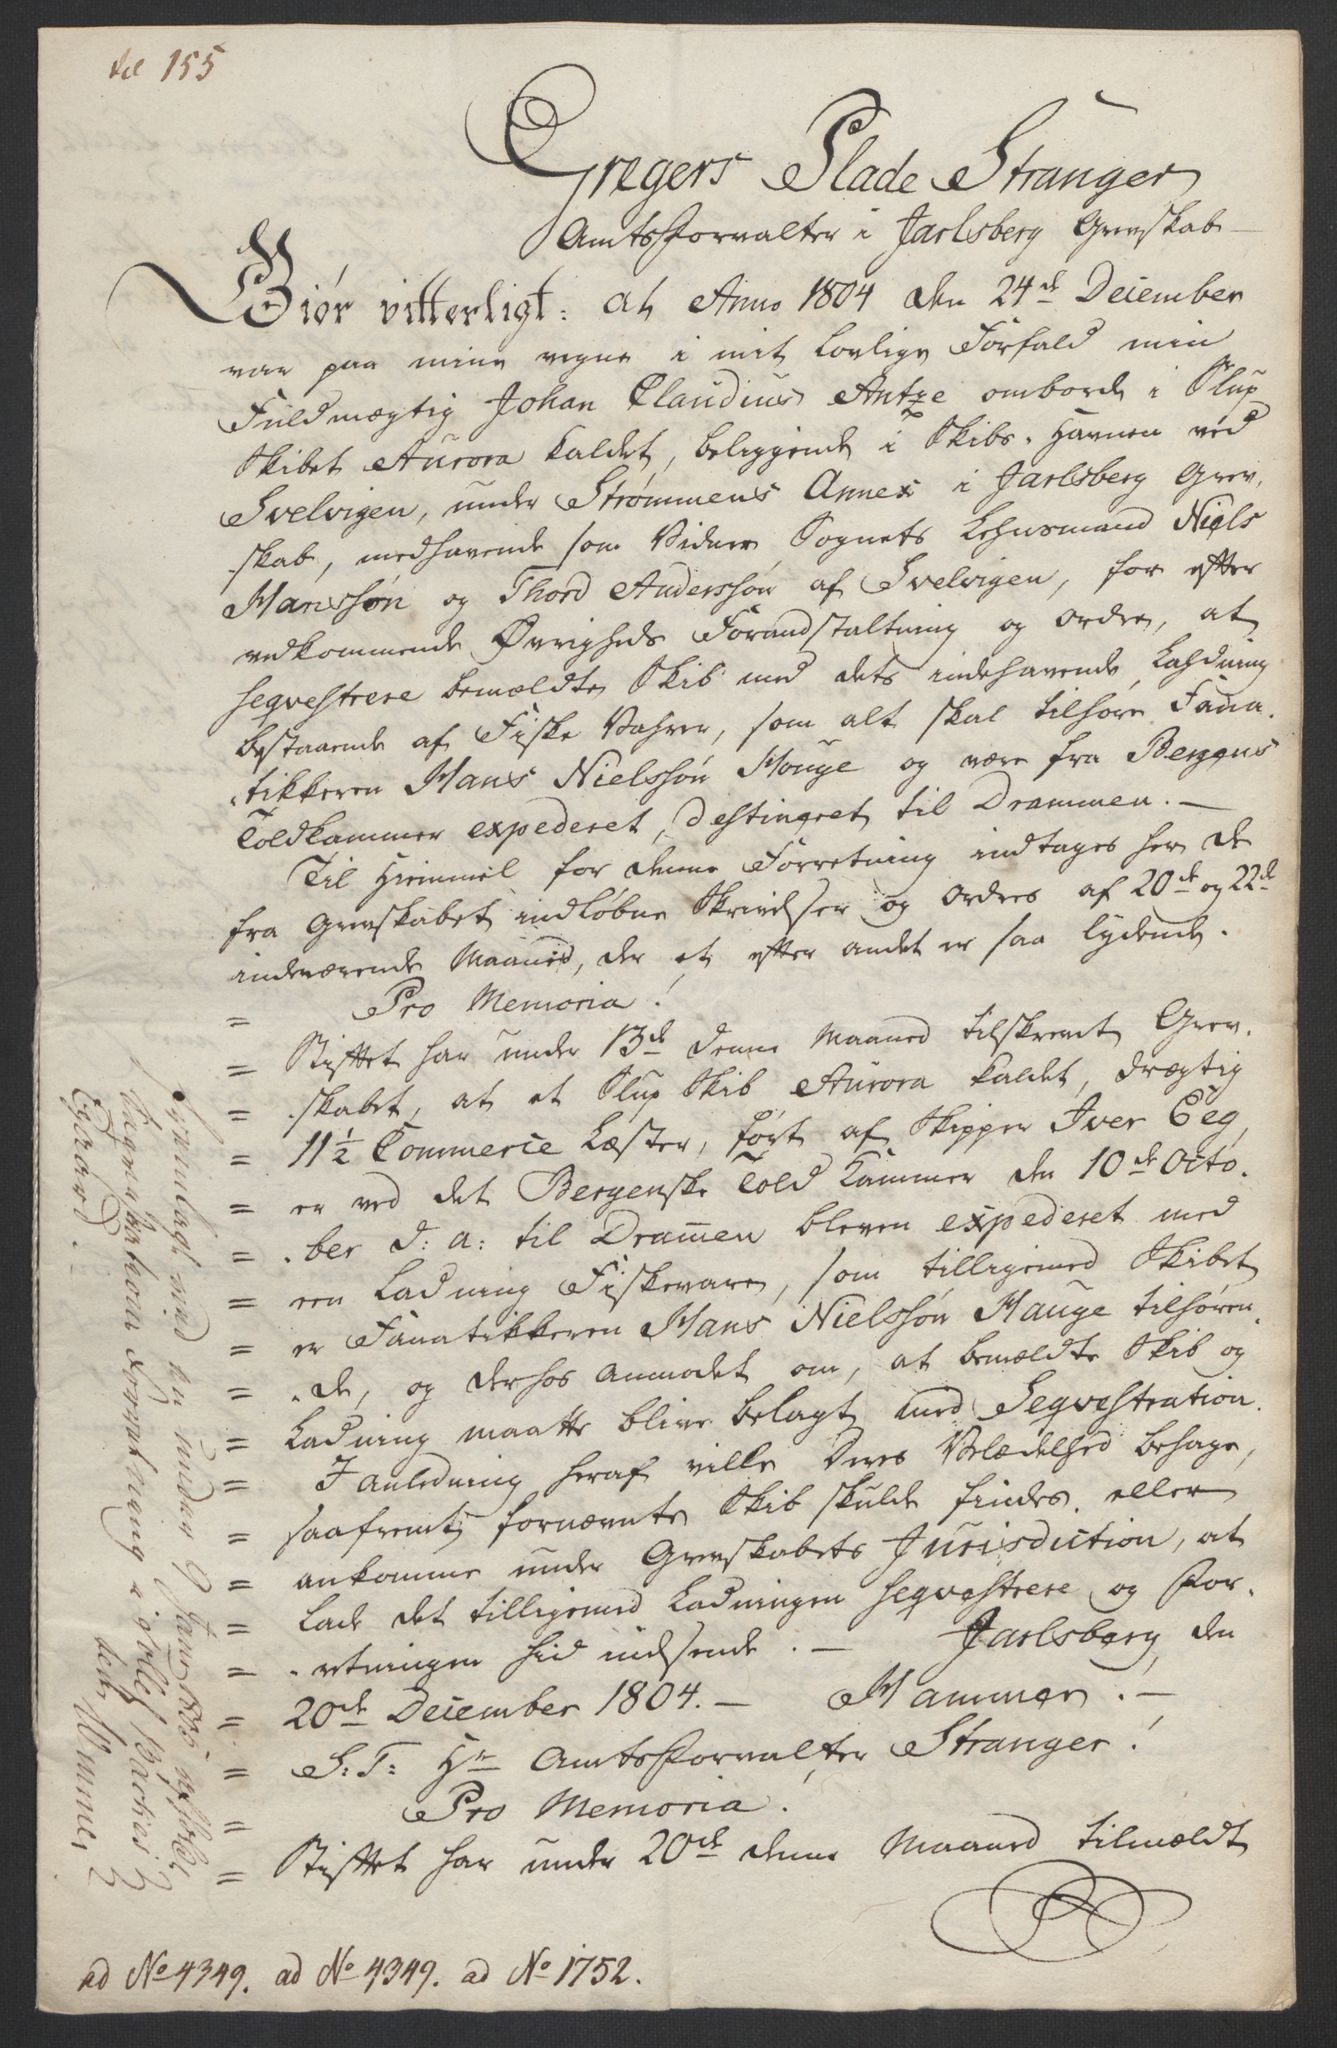 til 155
Gregers Slade Stranger
Amtsforvalter i Jarlsberg Grevskab
Giør vitterligt: at Anno 1804 den 24de December
var paa mine vegne i mit lovlige Forfald min
Fuldmægtig Johan Claudius Antze ombord i Slup
Skibet Aurora kaldet, beliggende i Skibs-Havnen ved
Svelvigen, under Strømmens Annex i Jarlsberg Grev-
skab, medhavende som Vidner Sognets Lehnsmand Niels
Hanssøn og Thord Anderssøn af Svelvigen, for efter
vedkommende Øvrigheds Foranstaltning og Ordre, at
seqvestrere bemældte Skib med dets indehavende Lahdning
bestaaende af Fiske Vahrer, som alt skal tilhøre Fana-
tikkeren Hans Nielssøn Houge og være fra Bergens
Toldkammer expederet, destineret til Drammen. —
Til Hiemmel for denne Forretning indtages her de
fra Grevskabet indløbne Skrivelser og Ordres af 20de og 22de
indeværende Maaned, der et efter andet er saa lydende.
= Pro Memoria!
= Stiftet har under 13de denne Maaned tilskrevet Grev-
= skabet, at et Slup Skib Aurora kaldet, drægtig
= 11½ Commerce Læster, ført af Skipper Iver Eeg,
= er ved det Bergenske Told Kammer den 10de Octo-
= ber d: a: til Dramen bleven expederet med
= een Ladning Fiskevare, som tilligemed Skibet
= er Fanatikkeren Hans Nielssøn Hauge tilhøren-
= de, og derhos anmodet om, at bemældte Skib og
= Ladning maatte blive belagt med Seqvestration.
= I anledning heraf ville Deres Velædelhed behage,
= saafremt fornævnte Skib skulde findes eller
= ankomme under Grevskabets Jurisdiction, at
= lade det tilligemed Ladningen seqvestrere og For-
= retningen hid indsende. — Jarlsberg, den
= 20de December 1804. — Hammer. —
= S: T: Hr Amtsforvalter Stranger!
= Pro Memoria.
= Stiftet har under 20de denne Maaned tilmældt
Fremlagt ved en under 9 Janv. 1805
Seqvestrations Forretning i
ad No 4349. ad No 4349. ad No 1752.